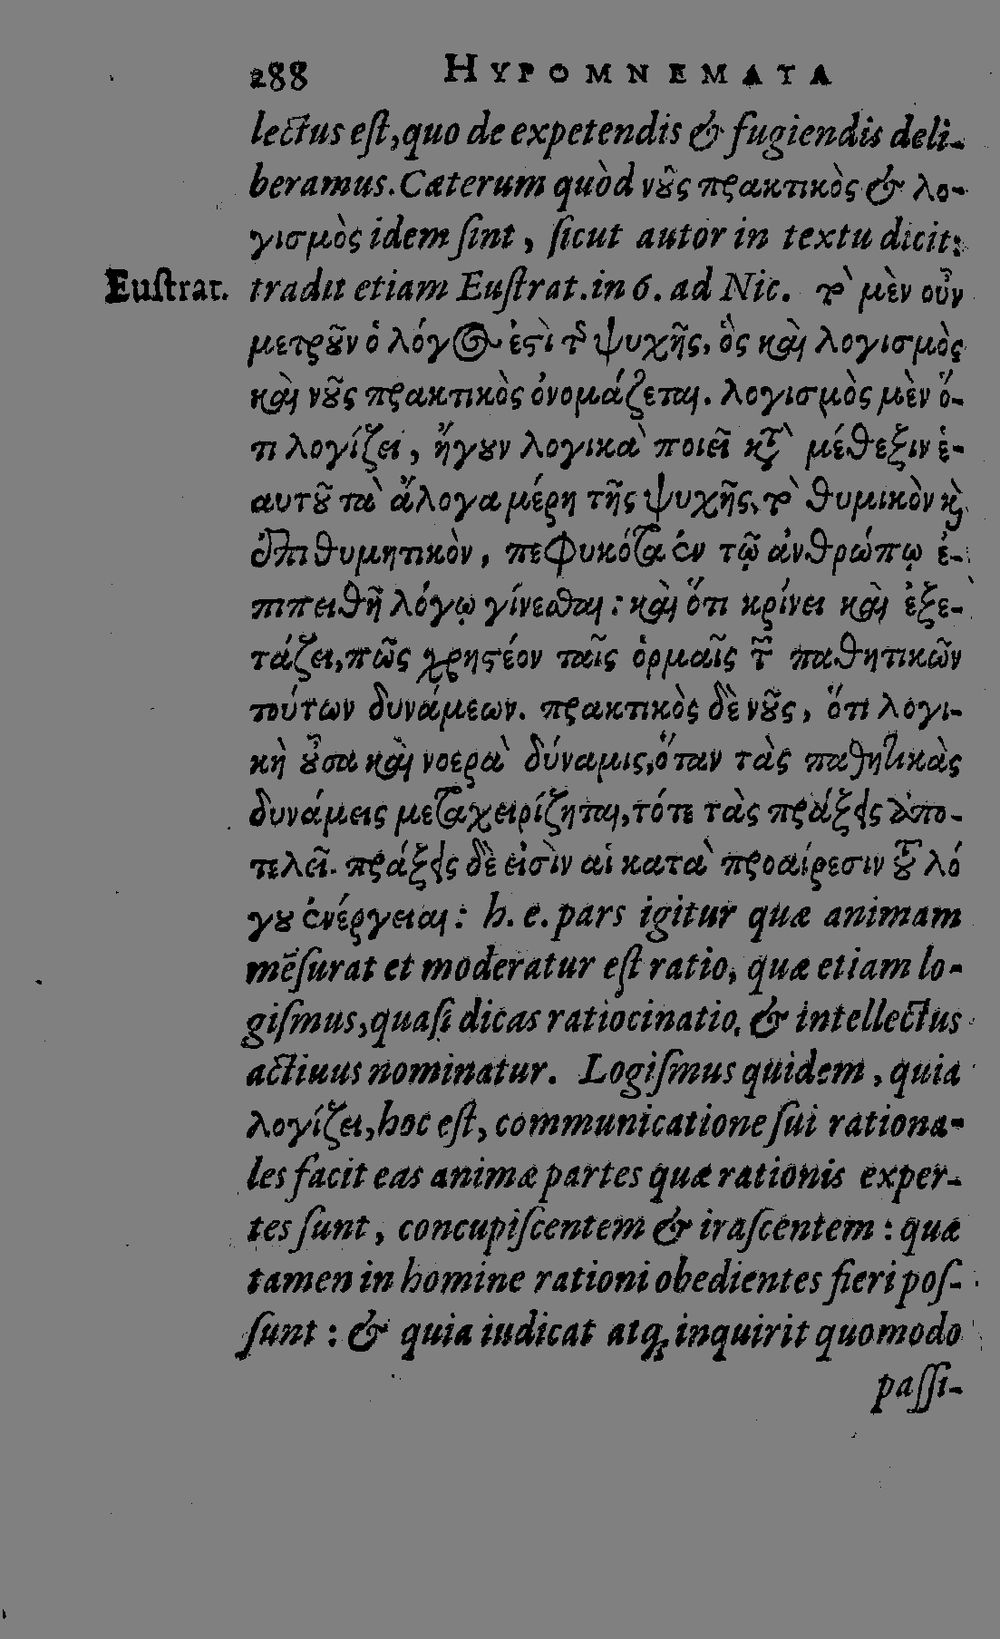 288 HYPOMNEMATA
lectus est, quo de expetendis & fugiendis deli-
beramus. Cæterum quòd νȣ̃ς πρακτικὸς & λο-
γισμὸς idem sint, sicut autor in textu dicit:
Eustrat. tradit etiam Eustrat. in 6. ad Nic. τὸ μὲν οὖν
μετρȣ̃ν ὁ λόγος ἐςὶ τ͂ ψυχῆς, ὃς καὶ λογισμὸς
καὶ νȣ̃ς πρακτικὸς ὀνομάζεται. λογισμὸς μὲν ὅ-
τι λογίζει, ἤγȣν λογικὰ ποιεῖ κτ̀ μέθεξιν ἑ-
αυτȣ̃ τὰ ἄλογα μέρη τῆς ψυχῆς, τὸ θυμικὸν κὶ
ἐπιθυμητικὸν, πεφυκότα ἐν τῷ ἀνθρώπῳ ἐ-
πιπειθῆ λόγῳ γίνεσθαι: καὶ ὅτι κρίνει καὶ ἐξε-
τάζει, πῶς χρηςέον ταῖς ὁρμαῖς τ͂ παθητικῶν
τούτων δυνάμεων. πρακτικὸς δὲ νȣ̃ς, ὅτι λογι-
κὴ ȣ̓͂σα καὶ νοερὰ δύναμις, ὅταν τὰς παθητικὰς
δυνάμεις μεταχειρίζηται, τότε τὰς πράξεις ἀπο-
τελεῖ. πράξεις δὲ εἰσὶν αἱ κατὰ προαίρεσιν τȣ̃ λό
γȣ ἐνέργειαι: h. e. pars igitur quæ animam
mēsurat et moderatur est ratio, quæ etiam lo-
gismus, quasi dicas ratiocinatio, & intellectus
actiuus nominatur. Logismus quidem, quia
λογίζει, hoc est, communicatione sui rationa-
les facit eas animæ partes quæ rationis exper-
tes sunt, concupiscentem & irascentem: quæ
tamen in homine rationi obedientes fieri pos-
sunt: & quia iudicat atq; inquirit quomodo
passi-